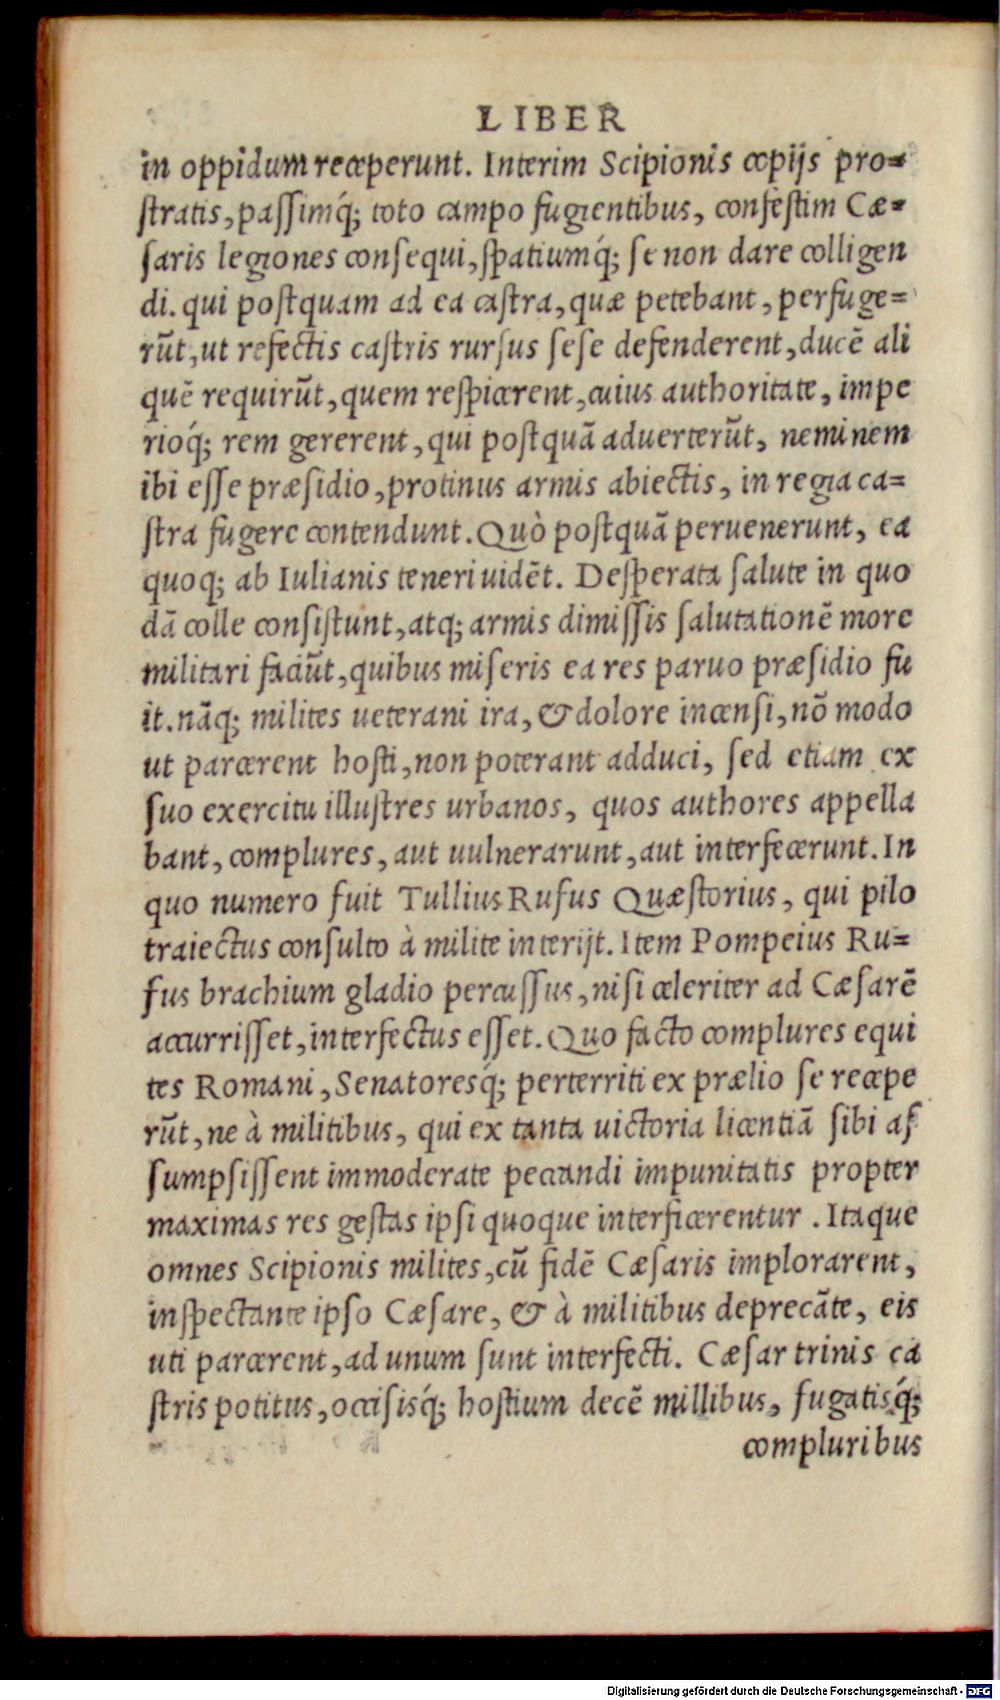 LIBER
in oppidum receperunt. Interim Scipionis copijs pro=
ſtratis, paſſimq́; toto campo fugientibus, confeſtim Cæ=
ſaris legiones conſequi, ſpatiumq́; ſe non dare colligen
di. qui poſtquam ad ea caſtra, quæ petebant, perfuge=
rūt, ut refectis caſtris rurſus ſeſe defenderent, ducē ali
quē requirūt, quem reſpicerent, cuius authoritate, impe
rioq́; rem gererent, qui poſtquā aduerterūt, neminem
ibi eſſe præſidio, protinus armis abiectis, in regia ca=
ſtra fugere contendunt. Quò poſtquā peruenerunt, ea
quoq; ab Iulianis teneri uidēt. Deſperata ſalute in quo
dā colle conſiſtunt, atq; armis dimiſſis ſalutationē more
militari faciūt, quibus miſeris ea res paruo præſidio fu
it. nāq; milites ueterani ira, & dolore incenſi, nō modo
ut parcerent hoſti, non poterant adduci, ſed etiam ex
ſuo exercitu illuſtres urbanos, quos authores appella
bant, complures, aut uulnerarunt, aut interfecerunt. In
quo numero fuit Tullius Rufus Quæſtorius, qui pilo
traiectus conſulto à milite interijt. Item Pompeius Ru=
fus brachium gladio percuſſus, niſi celeriter ad Cæſarē
accurriſſet, interfectus eſſet. Quo facto complures equi
tes Romani, Senatoresq́; perterriti ex prælio ſe recepe
rūt, ne à militibus, qui ex tanta uictoria licentiā ſibi aſ
ſumpſiſſent immoderate peccandi impunitatis propter
maximas res geſtas ipſi quoque interficerentur. Itaque
omnes Scipionis milites, cū fidē Cæſaris implorarent,
inſpectante ipſo Cæſare, & à militibus deprecāte, eis
uti parcerent, ad unum ſunt interfecti. Cæſar trinis ca
ſtris potitus, occiſisq́; hoſtium decē millibus, fugatisq́;
compluribus
Digitalisierung gefördert durch die Deutsche Forschungsgemeinschaft - DFG